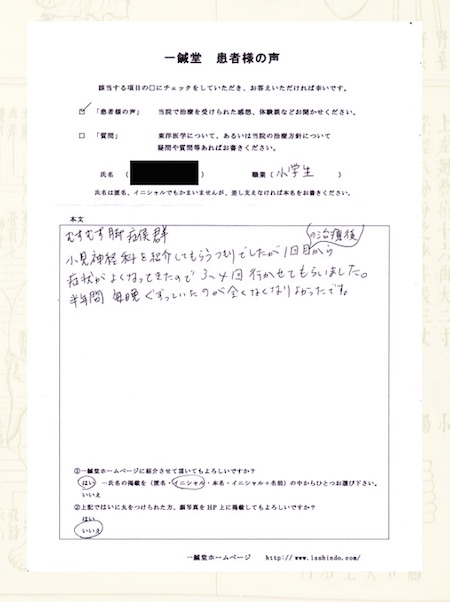 一鍼堂 患者様の声
該当する項目の□にチェックをしていただき、お答えいただければ幸いです。
☑ 「患者様の声」 当院で治療を受けられた感想、体験談などお聞かせください。
□ 「質問」 東洋医学について、あるいは当院の治療方針について
疑問や質問等あればお書きください。
氏名 ( ) 職業 ( 小学生 )
氏名は匿名、イニシャルでもかまいませんが、差し支えなければ本名をお書きください。
本文
むずむず脚症候群
の治療後
小児神経科を紹介してもらうつもりでしたが1回目から
症状がよくなってきたので 3〜4回 行かせてもらいました。
半年間 毎晩 ぐずっていたのが全くなくなりよかったです。
①一鍼堂ホームページに紹介させて頂いてもよろしいですか?
はい …氏名の掲載を(匿名・イニシャル・本名・イニシャル+名前)の中からひとつお選び下さい。
いいえ
②上記ではいに丸をつけられた方、顔写真を HP 上に掲載してもよろしいですか?
はい
いいえ
一鍼堂ホームページ http://www.isshindo.com/